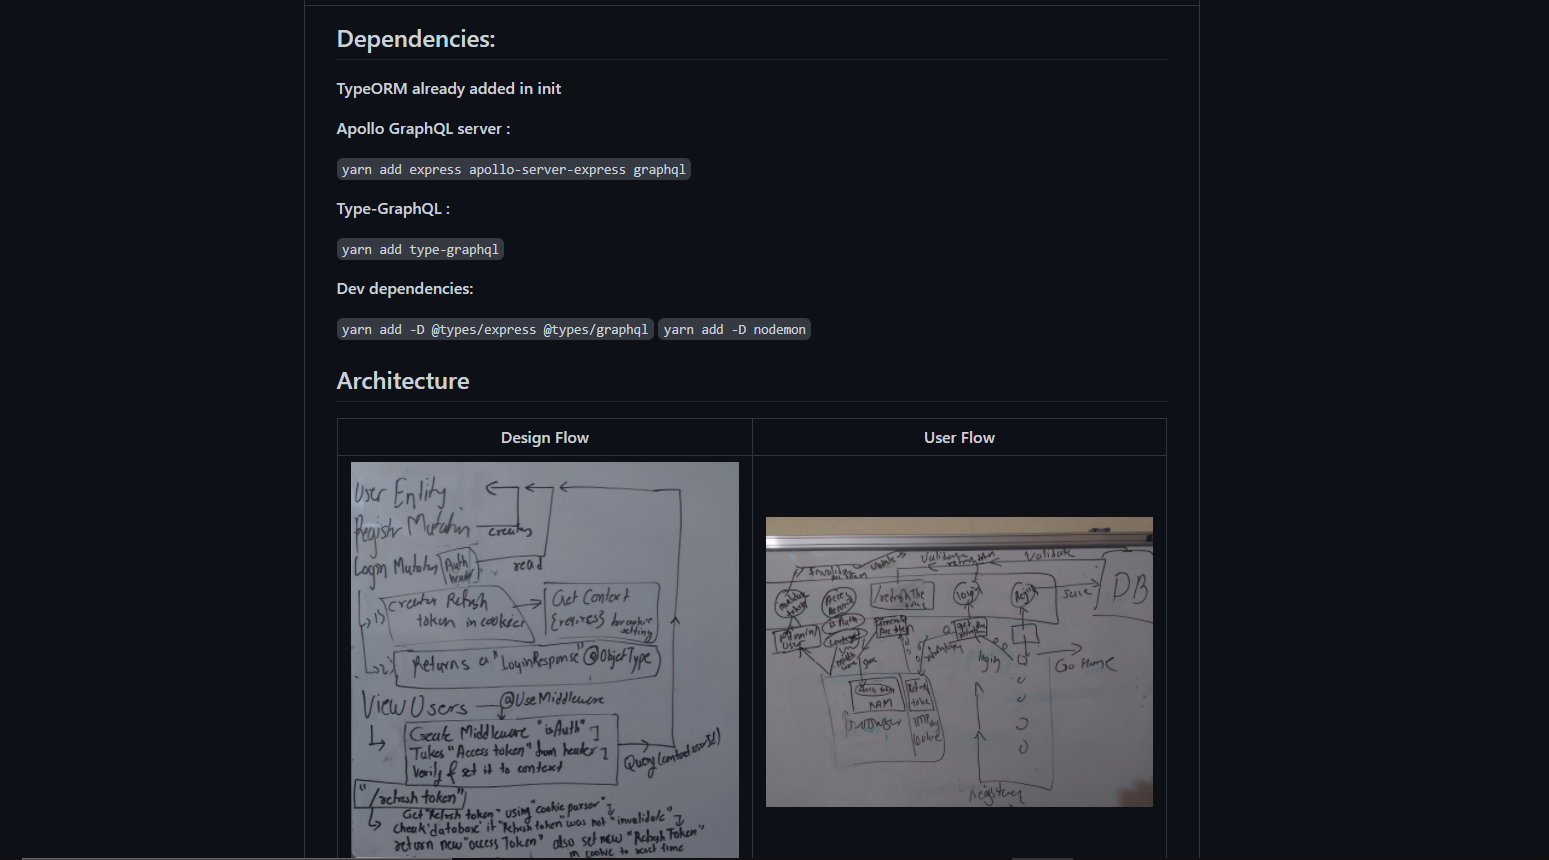 Dependencies:
TypeORM already added in init
Apollo GraphQL server :
yarn add express apollo-server-express graphql
Type-GraphQL :
yarn add type-graphql
Dev dependencies:
yarn add -D @types/express @types/graphql yarn add -D nodemon
Architecture
Design Flow
User Entity
Register Mutation
creates
Login Mutation
Auth
header
read
1) creates Refresh
token in cookies
Get Context
{req,res} for cookie
setting
2) Returns a "LoginResponse" @ObjetType
View Users @UseMiddleware
Create Middleware "isAuth"
Takes "Access token" from header
Verify & set it to context
Query (context.userId)
"/refresh token"
Get "Refresh token" using "cookie parser"
check 'database' if "Refresh token" was not "invalidate"
return new "access Token" also set new "Refresh Token"
in cookie to reset time
User Flow
Validate
Validate
save
DB
login
Go Home
isAuth
RAM
Browser